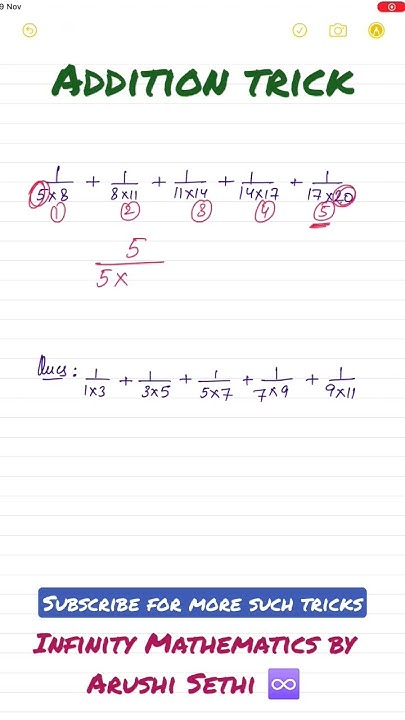 9 Nov
ADDITION TRICK
1/5×8 + 1/8×11 + 1/11×14 + 1/14×17 + 1/17×20
1 2 3 4 5
5/5×
Ques: 1/1×3 + 1/3×5 + 1/5×7 + 1/7×9 + 1/9×11
SUBSCRIBE FOR MORE SUCH TRICKS
INFINITY MATHEMATICS BY
ARUSHI SETHI ♾️